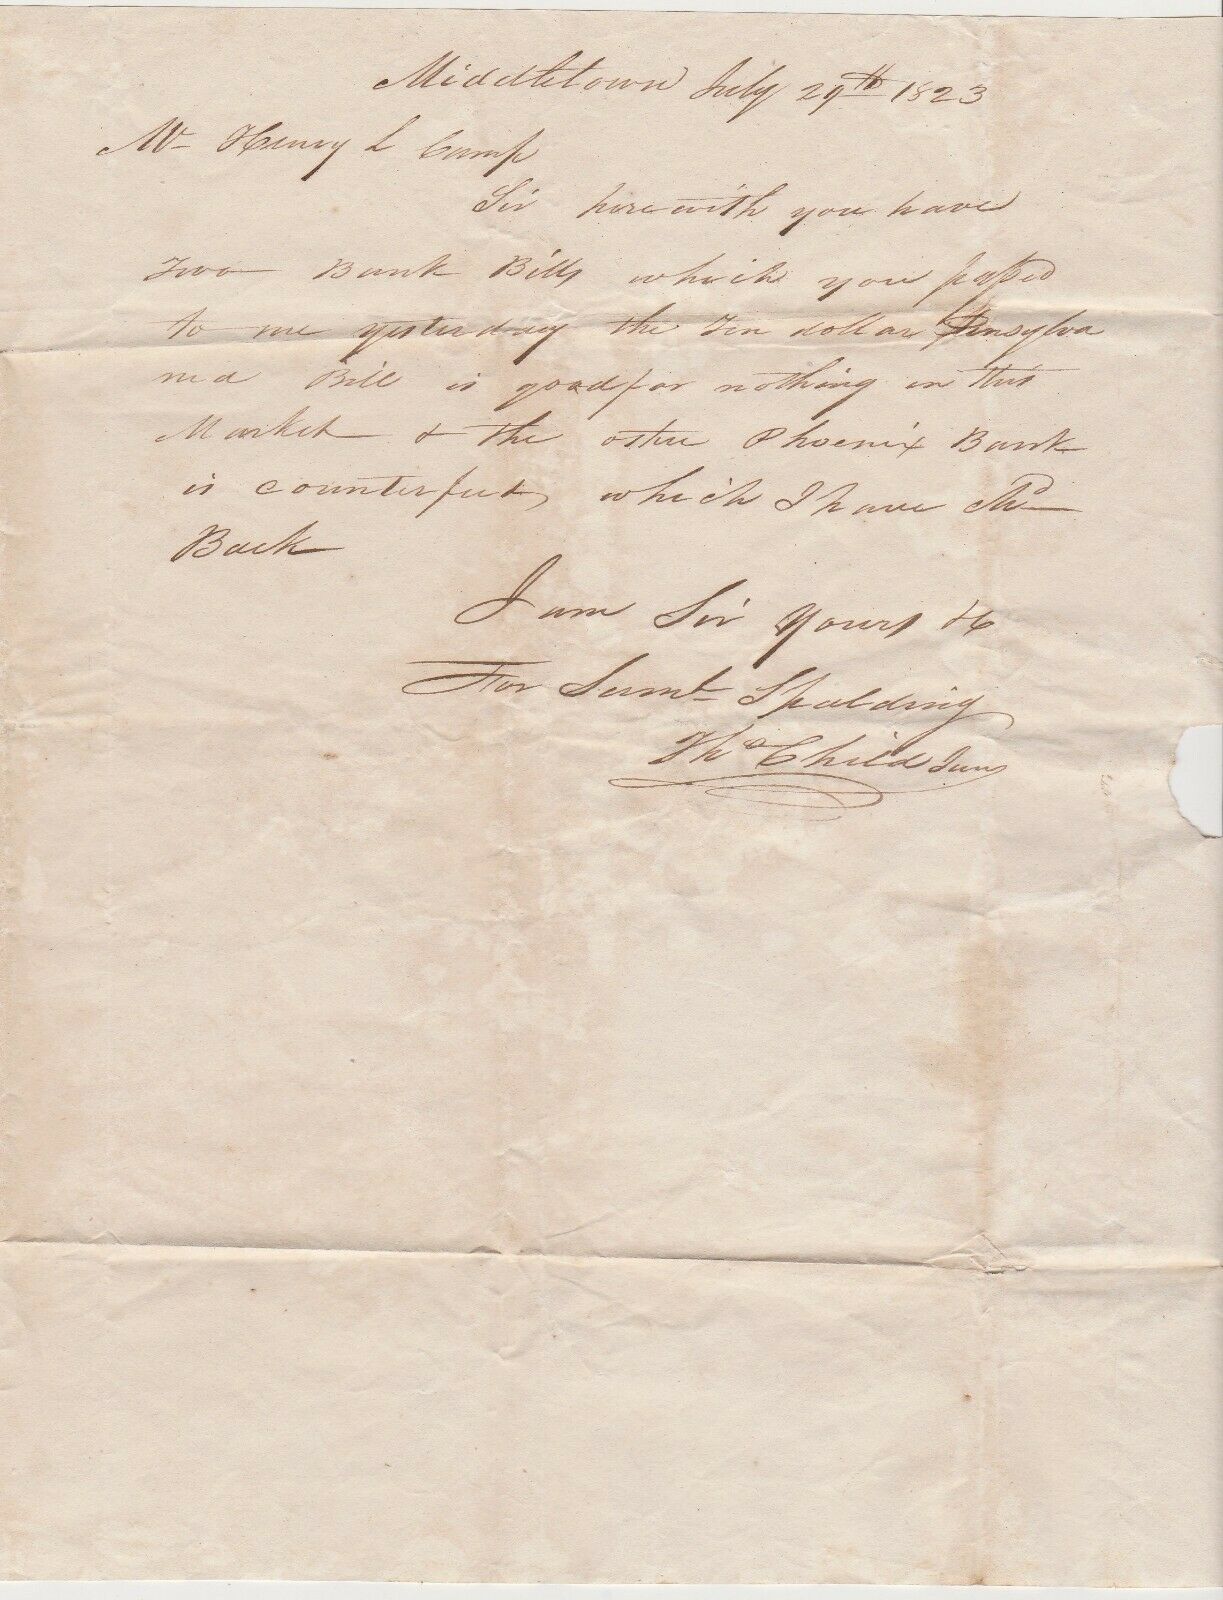 Middletown July 29th 1823
Mr Henry L Camp
Sir herewith you have
Two Bank Bills which you passed
to me yesterday the Ten dollar Pensylva
nia Bill is good for nothing in this
Market & the other Phoenix Bank
is counterfeit, which I have
Back
I am Sir Yours &c
For Saml Spalding
Thos Child Junr